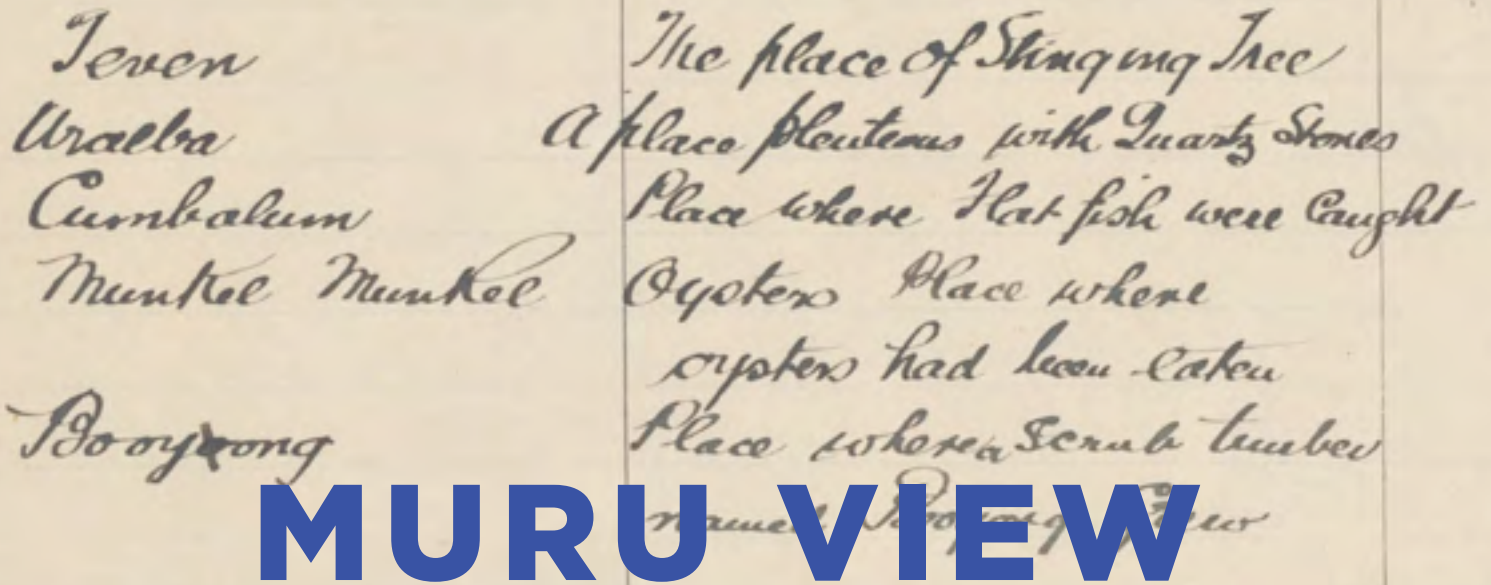 Teven The place of Stinging Tree
Uralba A place plenteous with Quartz Stones
Cumbalum Place where Flat fish were Caught
Munkel Munkel Oysters Place where
oysters had been eaten
Booyong Place where a Scrub timber
named Booyong Grew
MURU VIEW